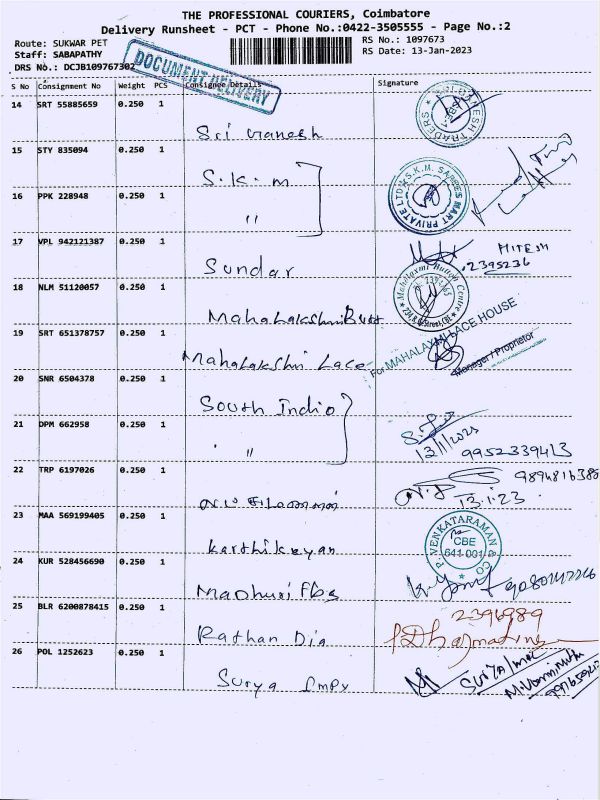 THE PROFESSIONAL COURIERS, Coimbatore
Delivery Runsheet - PCT - Phone No.:0422-3505555 - Page No.:2
Route: SUKWAR PET
RS No.: 1097673
Staff: SABAPATHY
RS Date: 13-Jan-2023
DRS No.: DCJB109767302
DOCUMENT DELIVERY
S No Consignment No Weight PCS Consignee Details Signature
14 SRT 55885659 0.250 1
Sri Ganesh
15 STY 835094 0.250 1
S.K.M
16 PPK 228948 0.250 1
"
17 VPL 942121387 0.250 1
Sundar
HITESH
2395236
18 NLM 51120057 0.250 1
Mahalakshmi Butt
Mahalaxmi Button Centre
19 SRT 651378757 0.250 1
Mahalakshmi Lace
For MAHALAXMI LACE HOUSE
Manager / Proprietor
20 SNR 6504378 0.250 1
South India
21 DPM 662958 0.250 1
"
13/1/2023
9952339413
22 TRP 6197026 0.250 1
13.1.23
23 MAA 569199405 0.250 1
Karthikeyan
P. VENKATARAMAN & CO
CBE
641 001
24 KUR 528456690 0.250 1
Madhuri Fbs
25 BLR 6200878415 0.250 1
Rathan Dia
2396989
26 POL 1252623 0.250 1
Surya Impx